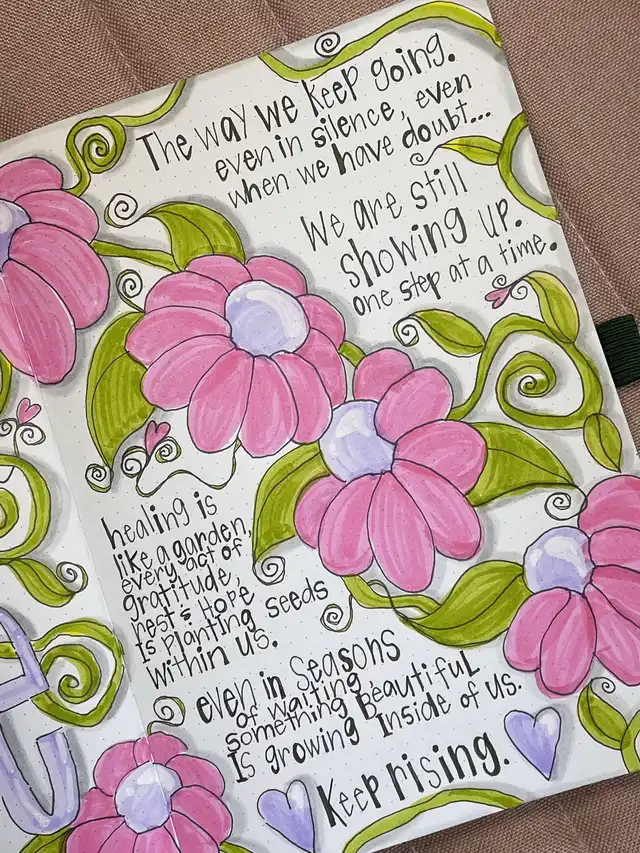 The way we keep going.
even in silence, even
when we have doubt...
We are still
showing up.
one step at a time.
healing is
like a garden,
every act of
gratitude,
rest & Hope
Is Planting seeds
within us.
even in Seasons
of waiting
something Beautiful
Is growing Inside of us.
Keep rising.